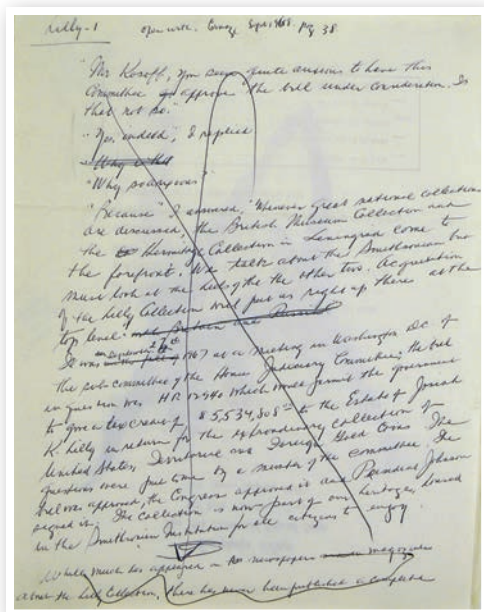 Lilly-1 open with. Coinage Sept 1968. pg 38.
"Mr Kosoff, you seem quite anxious to have this
Committee approve the bill under consideration. Is
that not so."
"Yes, indeed", I replied
"Why so anxious"
"Because" I answered, "Whenever great national collections
are discussed, the British Museum Collection and
the Hermitage Collection in Leningrad come to
the forefront. We talk about the Smithsonian but
must look at the the other two. Acquisition
of the Lilly Collection will put us right up there at the
top level."
It was on September 27th 1967 at a meeting in Washington DC of
the sub-committee of the House Judiciary Committee; the bill
in question was HR 12940 which would permit the government
to give a tax credit of $5,534,808 to the Estate of Josiah
K. Lilly in return for the extraordinary collection of
United States, Territorial and Foreign Gold Coins. The
questions were put to me by a member of the committee. The
bill was approved, the Congress approved it and President Johnson
signed it. The collection is now part of our heritage, housed
in the Smithsonian Institution for all citizens to enjoy.
While much has appeared in newspapers magazines
about the Lilly Collection, there has never been published a complete